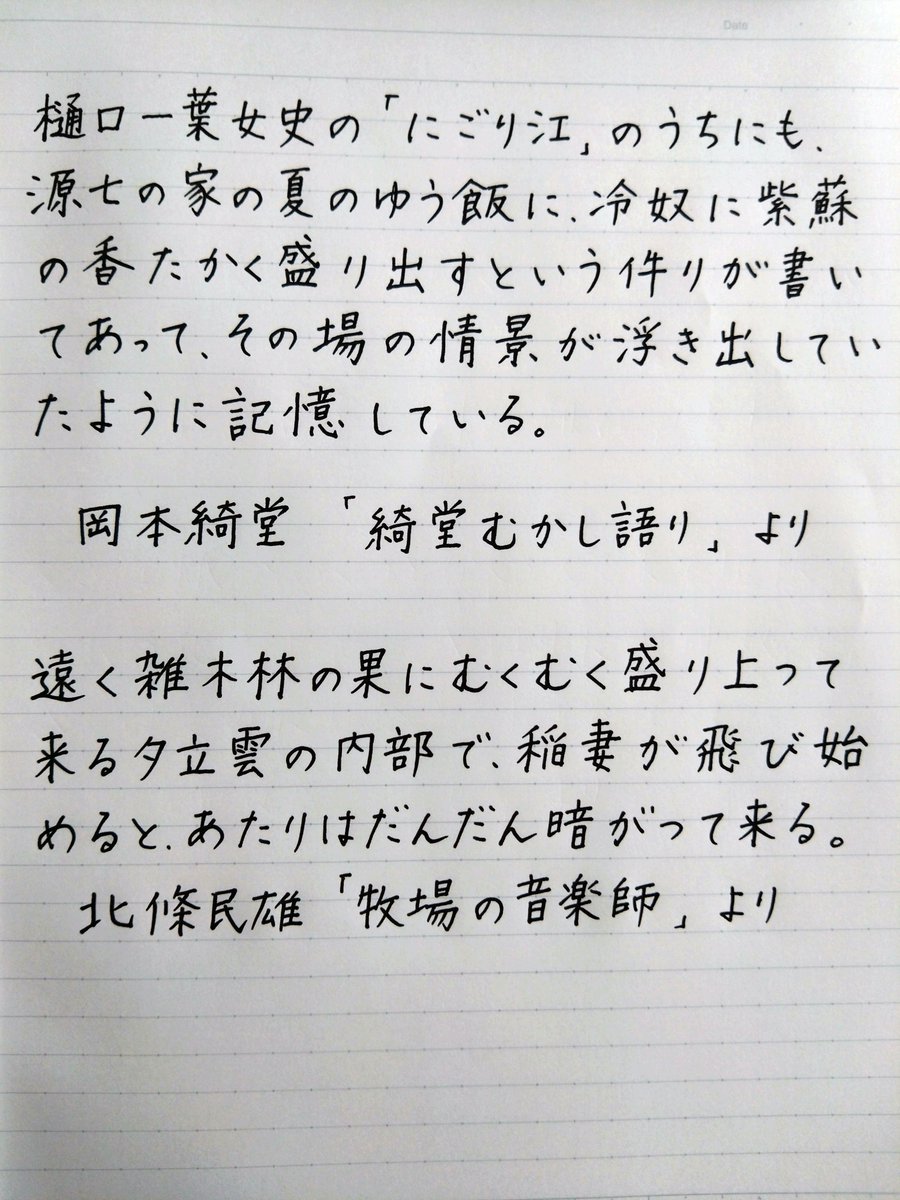 Date
樋口一葉女史の「にごり江」のうちにも、
源七の家の夏のゆう飯に、冷奴に紫蘇
の香たかく盛り出すという件りが書い
てあって、その場の情景が浮き出してい
たように記憶している。
岡本綺堂 「綺堂むかし語り」より
遠く雑木林の果にむくむく盛り上って
来る夕立雲の内部で、稲妻が飛び始
めると、あたりはだんだん暗がって来る。
北條民雄「牧場の音楽師」より